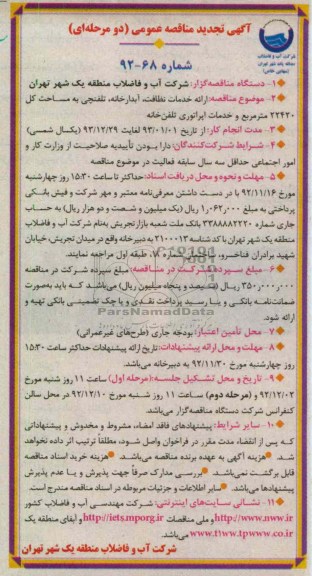 آگهی تجدید مناقصه عمومی (دو مرحله‌ای)
شماره ۶۸-۹۲
شرکت آب و فاضلاب
منطقه یک شهر تهران
(سهامی خاص)
۱- دستگاه مناقصه‌گزار: شرکت آب و فاضلاب منطقه یک شهر تهران
۲- موضوع مناقصه: ارائه خدمات نظافت، آبدارخانه، تلفنچی به مساحت کل
۲۲۴۲۰ مترمربع و خدمات اپراتوری تلفن‌خانه
۳- مدت انجام کار: از تاریخ ۹۳/۰۱/۰۱ لغایت ۹۳/۱۲/۲۹ (یکسال شمسی)
۴- شرایط شرکت‌کنندگان: دارا بودن تأییدیه صلاحیت از وزارت کار و
امور اجتماعی حداقل سه سال سابقه فعالیت در موضوع مناقصه
۵- مهلت و نحوه و محل دریافت اسناد: حداکثر تا ساعت ۱۵:۳۰ روز چهارشنبه
مورخ ۹۲/۱۱/۱۶ با در دست داشتن معرفی‌نامه معتبر و مهر شرکت و فیش بانکی
پرداختی به مبلغ ۱,۰۶۲,۰۰۰ ریال (یک میلیون و شصت و دو هزار ریال) به حساب
جاری شماره ۳۳۸۸۸۲۲۲۰ بانک ملت شعبه بازار تجریش به‌نام شرکت آب و فاضلاب
منطقه یک شهر تهران با کد شناسه ۲۱۰۰۰۱۳ به دبیرخانه واقع در میدان تجریش، خیابان
شهید برادران فناخسرو، ساختمان شماره ۷، طبقه اول مراجعه نمایند.
۶- مبلغ سپرده شرکت در مناقصه: مبلغ سپرده شرکت در مناقصه
۳۵۰,۰۰۰,۰۰۰ ریال (سیصد و پنجاه میلیون ریال) می‌باشد که باید به‌صورت
ضمانت‌نامه بانکی و یا رسید پرداخت نقدی و یا چک تضمینی بانکی تهیه و
ارائه شود.
۷- محل تأمین اعتبار: بودجه جاری (طرح‌های غیرعمرانی)
۸- مهلت و محل ارائه پیشنهادات: تاریخ ارائه پیشنهادات حداکثر ساعت ۱۵:۳۰
روز چهارشنبه مورخ ۹۲/۱۱/۳۰ به دبیرخانه می‌باشد.
۹- تاریخ و محل تشکیل جلسه: (مرحله اول) ساعت ۱۱ روز شنبه مورخ
۹۲/۱۲/۰۳ (مرحله دوم) ساعت ۱۱ روز شنبه مورخ ۹۲/۱۲/۱۰ در محل سالن
کنفرانس شرکت دستگاه مناقصه‌گزار می‌باشد.
۱۰- سایر شرایط: پیشنهادهای فاقد امضاء، مشروط و مخدوش و پیشنهاداتی
که پس از انقضاء مدت مقرر در فراخوان واصل شود، مطلقاً ترتیب اثر داده نخواهد
شد. هزینه آگهی به عهده برنده مناقصه می‌باشد. هزینه خرید اسناد مناقصه
قابل برگشت نمی‌باشد. بررسی مدارک صرفاً جهت پذیرش و یا عدم پذیرش
پیشنهادها می‌باشد. سایر اطلاعات و جزئیات مربوطه در اسناد مناقصه مندرج است.
۱۱- نشانی سایت‌های اینترنتی: شرکت مهندسی آب و فاضلاب کشور
http://www.nww.ir و ملی مناقصات http://iets.mporg.ir و آبفای منطقه یک
www.t1ww.tpww.co.ir می‌باشد.
شرکت آب و فاضلاب منطقه یک شهر تهران
ParsNamadData